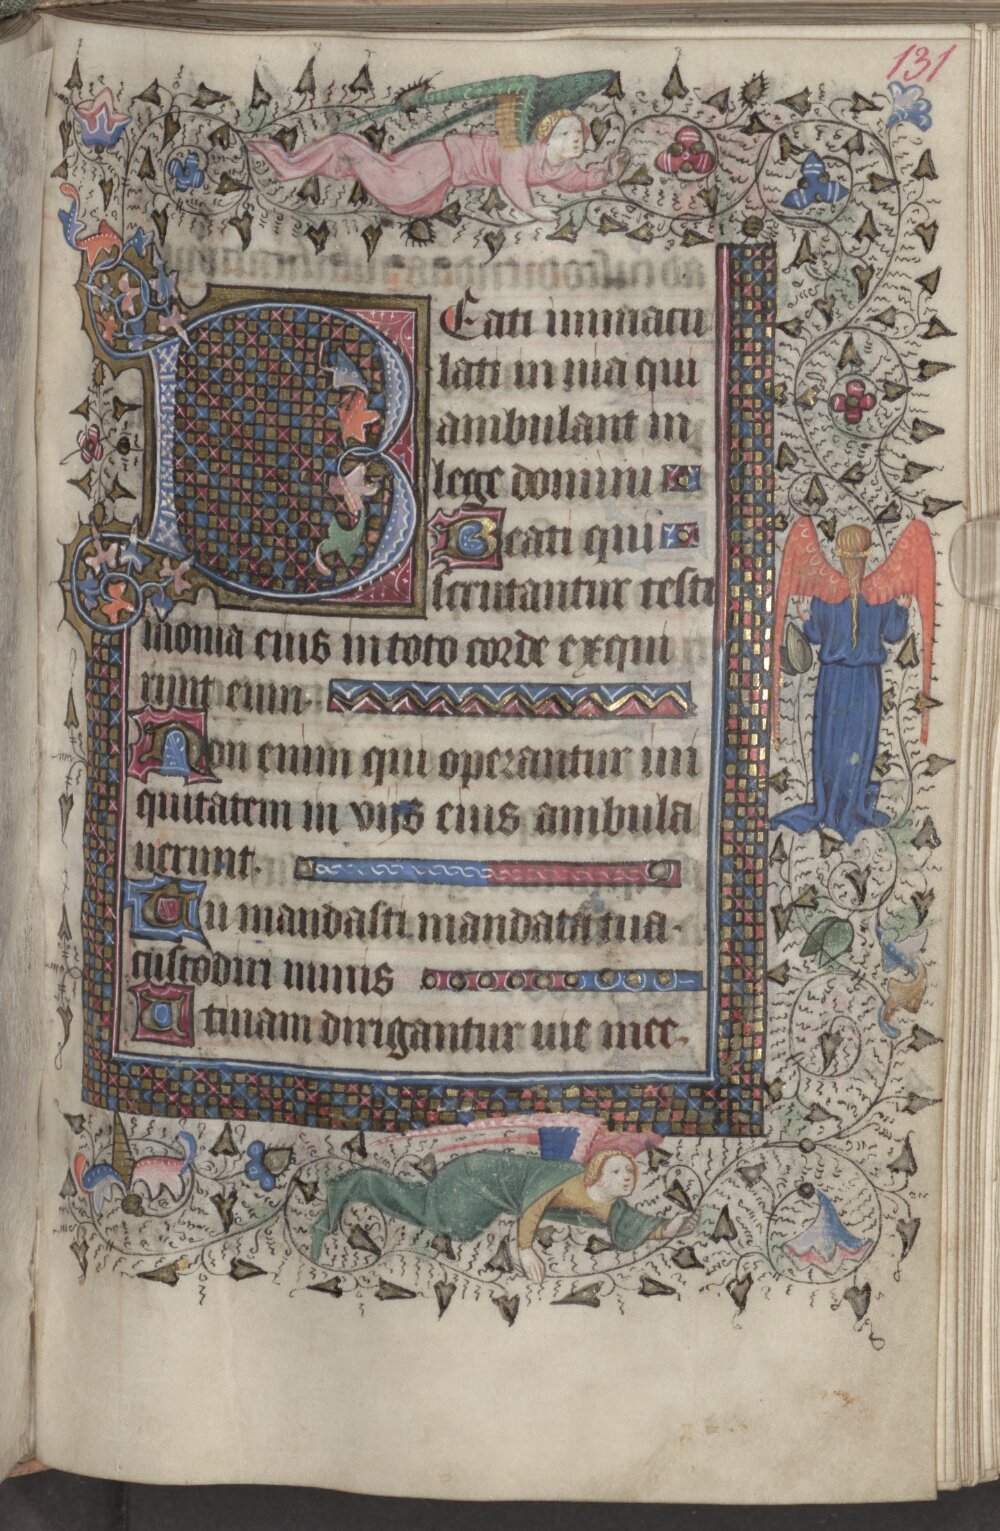 131
Beati inmacu
lati in uia qui
ambulant in
lege domini
Beati qui
scrutantur testi
monia eius in toto corde exqui
runt eum.
Non enim qui operantur ini
quitatem in viis eius ambula
uerunt.
Tu mandasti mandata tua.
custodiri nimis
Utinam dirigantur uie mee.